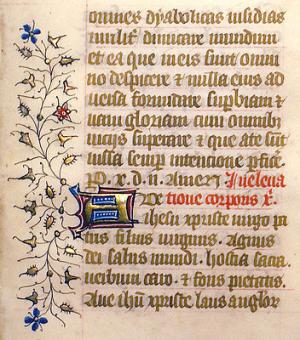 omnes dyabolicas insidias
viriliter dimicare mundum
et ea que in eis sunt omni
no despicere et nulla eius ad
versa formidare superbiam et
vanam gloriam cum omnibus
viciis superare et que a te sunt
iussa semper intencione perficere.
P. x. d. n. Amen. In eleva
tione corporis x.
Ihesu xpriste virgo pa
tris filius virginis. Agnus
dei salus mundi. hostia sacra
verbum caro. et fons pietatis.
Ave ihu xpriste laus anglor